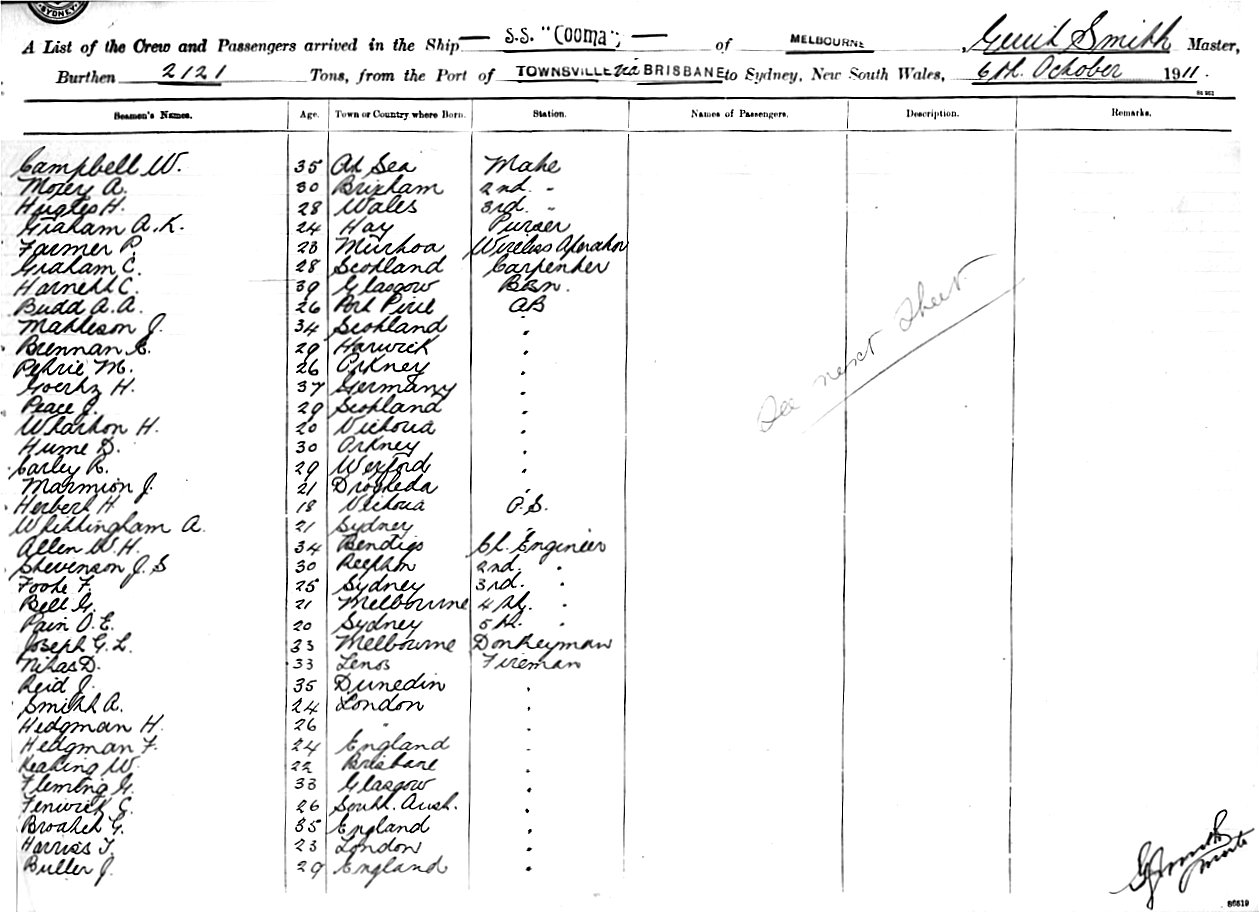 SYDNEY
A List of the Crew and Passengers arrived in the Ship S.S. "Cooma"; of MELBOURNE, Smith Master,
Burthen 2121 Tons, from the Port of TOWNSVILLE via BRISBANE to Sydney, New South Wales, 6th. October 1911.
Seamen's Names. Age. Town or Country where Born. Station. Names of Passengers. Description. Remarks.
Campbell W. 35 At Sea Mate
Moxey A. 30 Brixham 2nd. "
Hughes H. 28 Wales 3rd. "
Graham A.K. 24 Hay Purser
Farmer P. 23 Murtoa Wireless Operator
Graham C. 28 Scotland Carpenter
Harnett C. 39 Glasgow Bsn.
Budd A.A. 26 Port Pirie AB
Matheson J. 34 Scotland "
Brennan E. 29 Harwick "
Petrie M. 26 Orkney "
Goertz H. 37 Germany "
Peace J. 29 Scotland "
Wharton H. 20 Victoria "
Hume D. 30 Orkney "
Carley R. 29 Wexford "
Marmion J. 21 Drogheda "
Herbert H 18 Victoria O.S.
Whittingham A. 21 Sydney "
Allen W.H. 34 Bendigo Ch. Engineer
Stevenson J.S 30 Reefton 2nd. "
Foote F. 25 Sydney 3rd. "
Bell G. 21 Melbourne 4th. "
Pain O.E. 20 Sydney 5th. "
Joseph G.L. 23 Melbourne Donkeyman
Nikas D. 33 Lenos Fireman
Reid J. 35 Dunedin "
Smith A. 24 London "
Hedgman H. 26 " "
Hedgman F. 24 England "
Keating W. 22 Brisbane "
Fleming G. 33 Glasgow "
Fenwick G. 26 South. Aust. "
Broatch G. 35 England "
Harriss T. 23 London "
Buller J. 29 England "
See next Sheet
86519